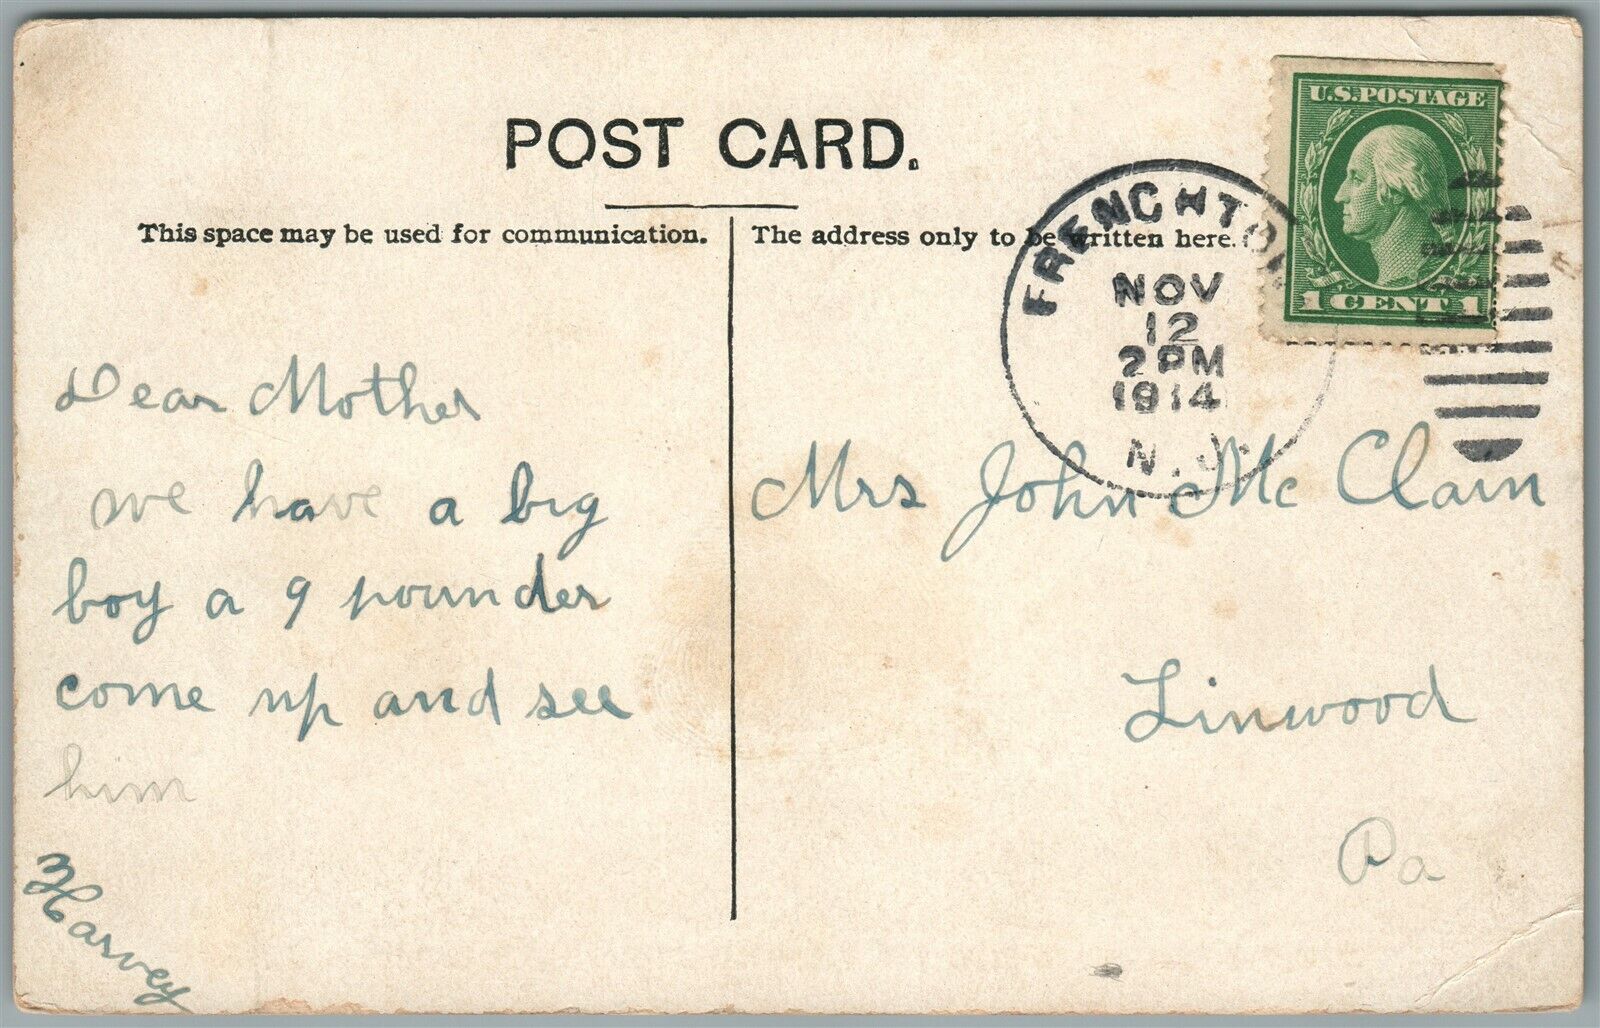 POST CARD.
This space may be used for communication.
The address only to be written here.
U.S. POSTAGE
1 CENT 1
FRENCHTOWN
NOV
12
2 PM
1914
N.J.
Dear Mother
we have a big
boy a 9 pounder
come up and see
him
Harvey
Mrs John Mc Clain
Linwood
Pa